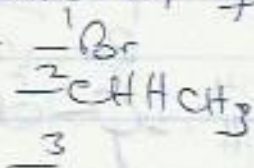 1 Br
2 CHHCH3
3